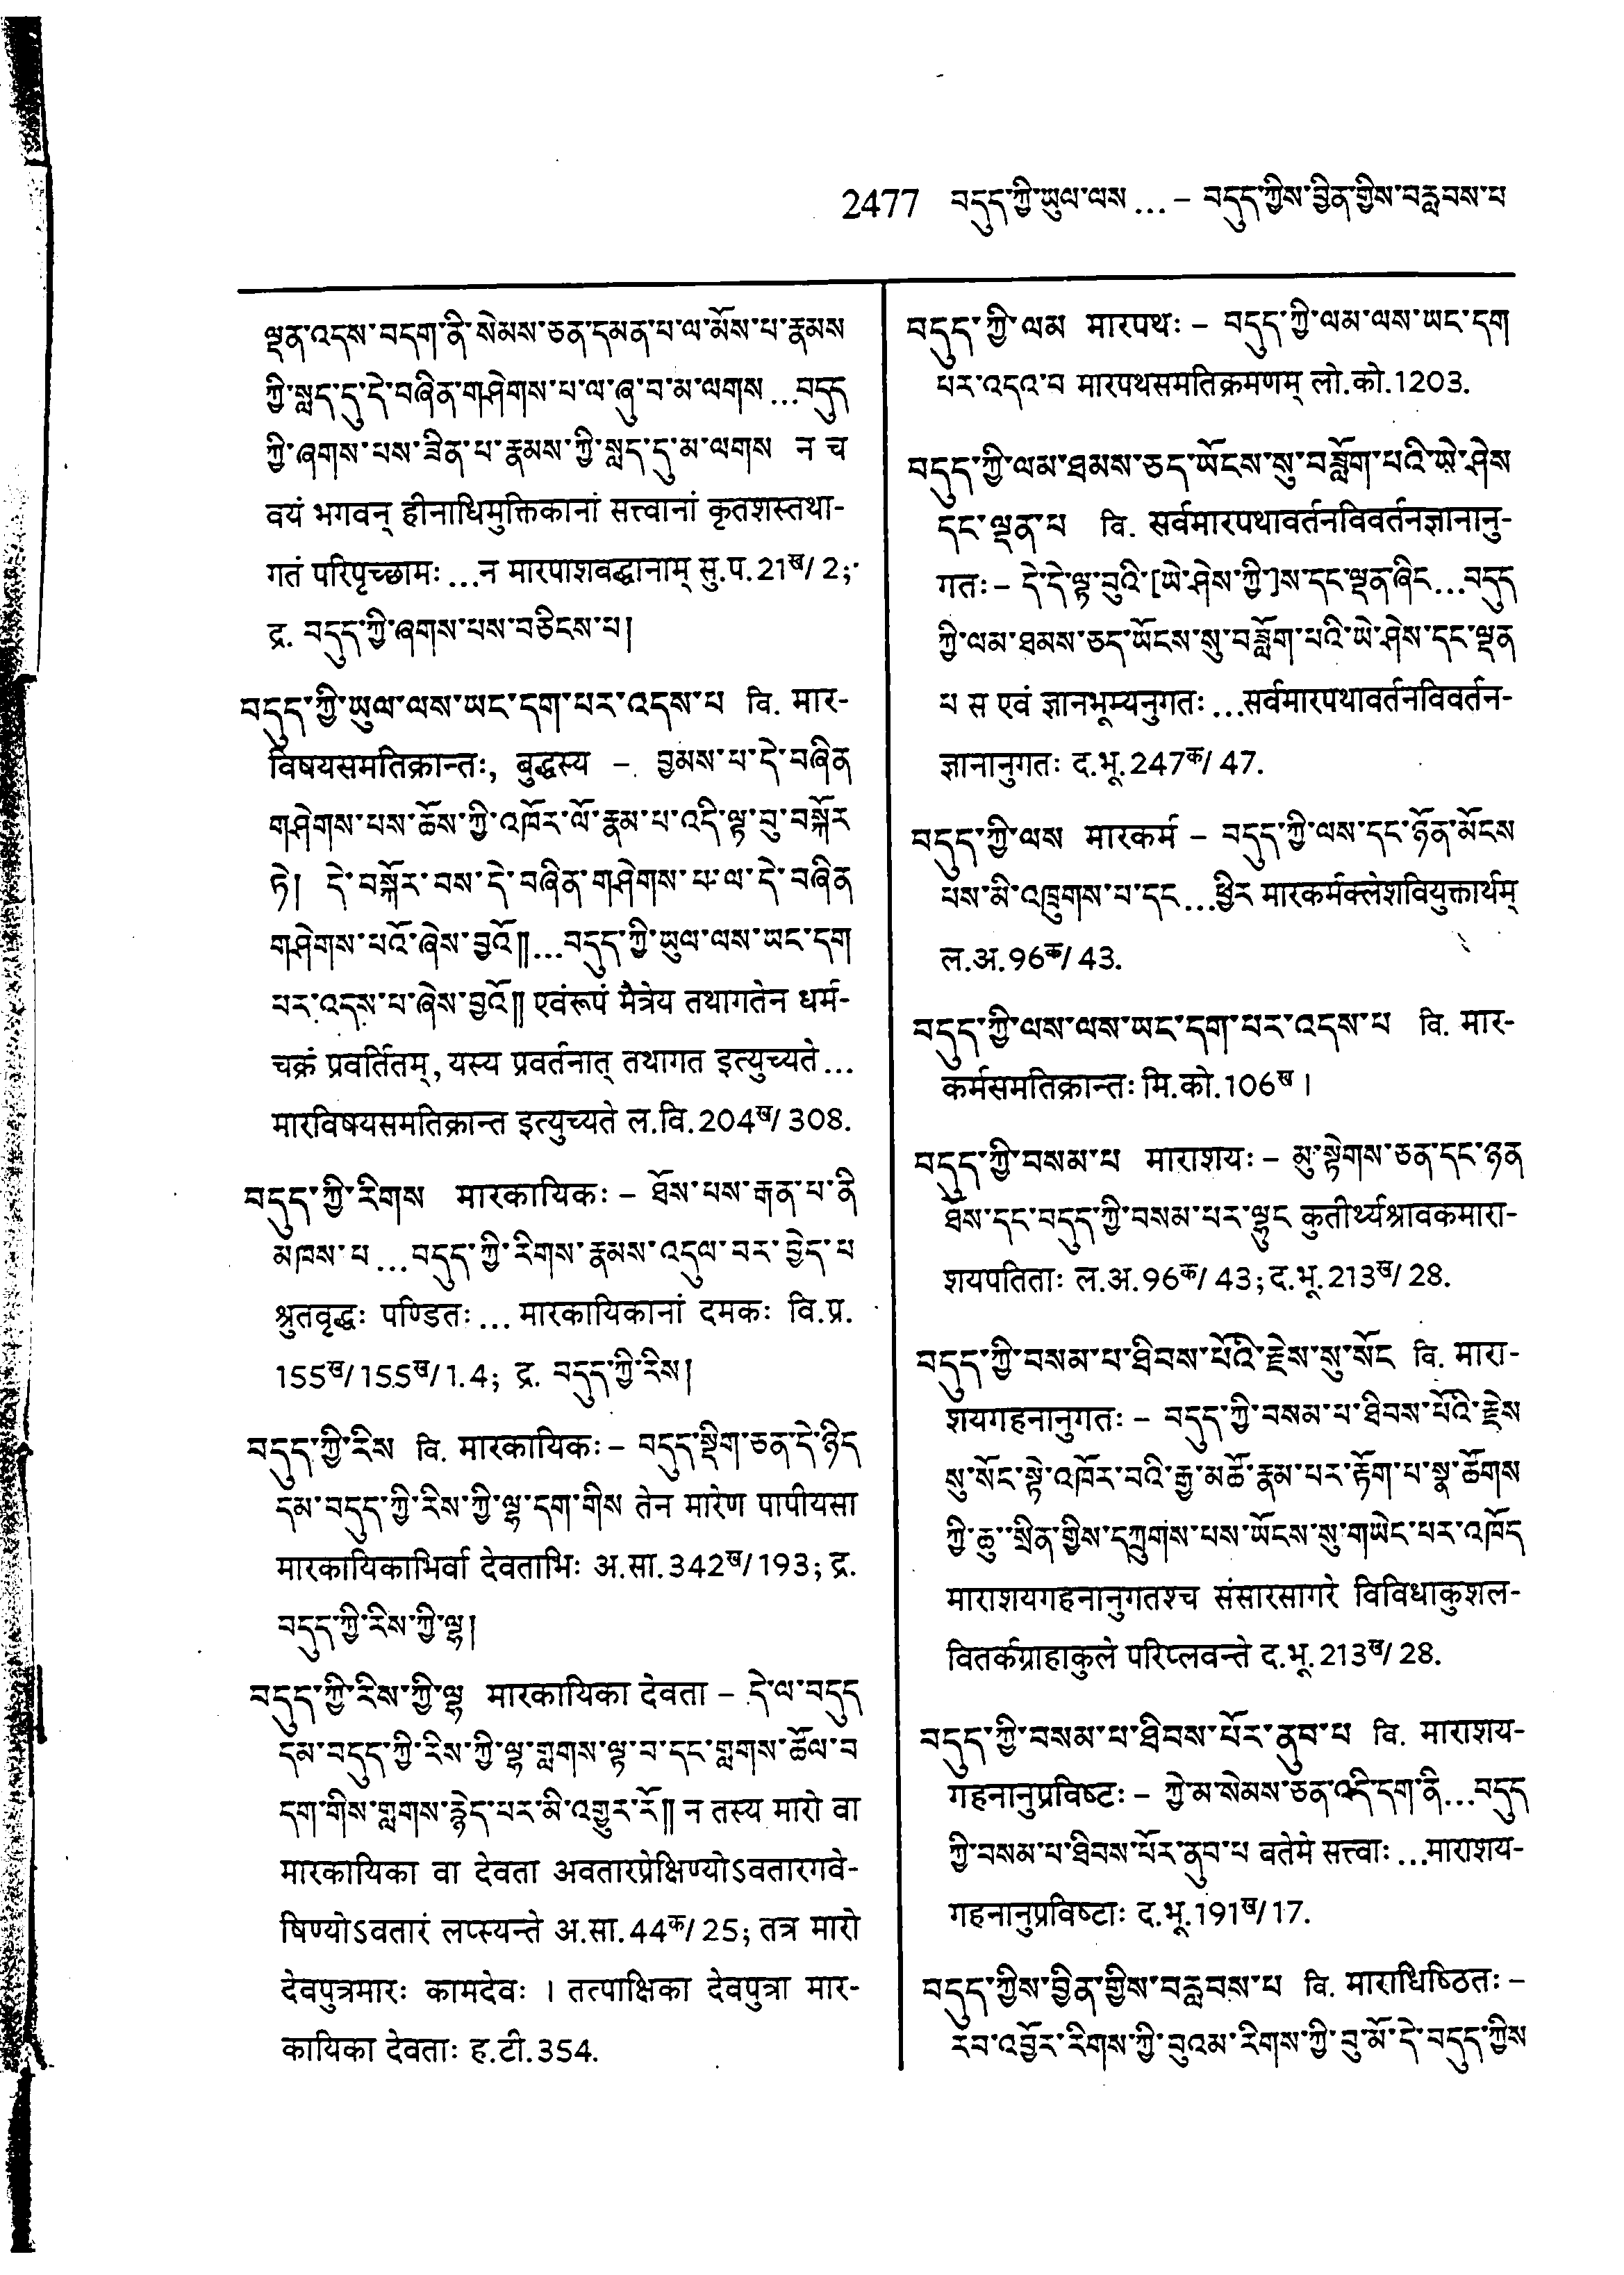 2477 བདུད་ཀྱི་ཡུལ་ལས ... – བདུད་ཀྱིས་བྱིན་གྱིས་བརླབས་པ
ལྡན་འདས་བདག་ནི་སེམས་ཅན་དམན་པ་ལ་མོས་པ་རྣམས
ཀྱི་སླད་དུ་དེ་བཞིན་གཤེགས་པ་ལ་ཞུ་བ་མ་ལགས ...བདུད
ཀྱི་ཞགས་པས་ཟིན་པ་རྣམས་ཀྱི་སླད་དུ་མ་ལགས न च
वयं भगवन् हीनाधिमुक्तिकानां सत्त्वानां कृतशस्तथा-
गतं परिपृच्छामः ...न मारपाशबद्धानाम् सु.प.21ख/2;
द्र. བདུད་ཀྱི་ཞགས་པས་བཅིངས་པ།
བདུད་ཀྱི་ཡུལ་ལས་ཡང་དག་པར་འདས་པ वि. मार-
विषयसमतिक्रान्तः, बुद्धस्य – བྱམས་པ་དེ་བཞིན
གཤེགས་པས་ཆོས་ཀྱི་འཁོར་ལོ་རྣམ་པ་འདི་ལྟ་བུ་བསྐོར
ཏེ། དེ་བསྐོར་བས་དེ་བཞིན་གཤེགས་པ་ལ་དེ་བཞིན
གཤེགས་པའོ་ཞེས་བྱའོ།།...བདུད་ཀྱི་ཡུལ་ལས་ཡང་དག
པར་འདས་པ་ཞེས་བྱའོ།། एवंरूपं मैत्रेय तथागतेन धर्म-
चक्रं प्रवर्तितम्, यस्य प्रवर्तनात् तथागत इत्युच्यते...
मारविषयसमतिक्रान्त इत्युच्यते ल.वि.204ख/308.
བདུད་ཀྱི་རིགས मारकायिकः – ཐོས་པས་རྒན་པ་ནི
མཁས་པ ...བདུད་ཀྱི་རིགས་རྣམས་འདུལ་བར་བྱེད་པ
श्रुतवृद्धः पण्डितः... मारकायिकानां दमकः वि.प्र.
155ख/155ख/1.4; द्र. བདུད་ཀྱི་རིས།
བདུད་ཀྱི་རིས वि. मारकायिकः – བདུད་སྡིག་ཅན་དེ་ཉིད
དམ་བདུད་ཀྱི་རིས་ཀྱི་ལྷ་དག་གིས तेन मारेण पापीयसा
मारकायिकाभिर्वा देवताभिः अ.सा.342ख/193; द्र.
བདུད་ཀྱི་རིས་ཀྱི་ལྷ།
བདུད་ཀྱི་རིས་ཀྱི་ལྷ मारकायिका देवता – དེ་ལ་བདུད
དམ་བདུད་ཀྱི་རིས་ཀྱི་ལྷ་གླགས་ལྟ་བ་དང་གླགས་ཚོལ་བ
དག་གིས་གླགས་རྙེད་པར་མི་འགྱུར་རོ།། न तस्य मारो वा
मारकायिका वा देवता अवतारप्रेक्षिण्योऽवतारगवे-
षिण्योऽवतारं लप्स्यन्ते अ.सा.44क/25; तत्र मारो
देवपुत्रमारः कामदेवः । तत्पाक्षिका देवपुत्रा मार-
कायिका देवताः ह.टी.354.
བདུད་ཀྱི་ལམ मारपथः – བདུད་ཀྱི་ལམ་ལས་ཡང་དག
པར་འདའ་བ मारपथसमतिक्रमणम् लो.को.1203.
བདུད་ཀྱི་ལམ་ཐམས་ཅད་ཡོངས་སུ་བཟློག་པའི་ཡེ་ཤེས
དང་ལྡན་པ वि. सर्वमारपथावर्तनविवर्तनज्ञानानु-
गतः – དེ་དེ་ལྟ་བུའི་[ཡེ་ཤེས་ཀྱི་]ས་དང་ལྡན་ཞིང...བདུད
ཀྱི་ལམ་ཐམས་ཅད་ཡོངས་སུ་བཟློག་པའི་ཡེ་ཤེས་དང་ལྡན
པ स एवं ज्ञानभूम्यनुगतः ...सर्वमारपथावर्तनविवर्तन-
ज्ञानानुगतः द.भू.247क/47.
བདུད་ཀྱི་ལས मारकर्म – བདུད་ཀྱི་ལས་དང་ཉོན་མོངས
པས་མི་འཁྲུགས་པ་དང...ཕྱིར मारकर्मक्लेशवियुक्तार्थम्
ल.अ.96क/43.
བདུད་ཀྱི་ལས་ལས་ཡང་དག་པར་འདས་པ वि. मार-
कर्मसमतिक्रान्तः मि.को.106ख ।
བདུད་ཀྱི་བསམ་པ माराशयः – མུ་སྟེགས་ཅན་དང་ཉན
ཐོས་དང་བདུད་ཀྱི་བསམ་པར་ལྷུང कुतीर्थ्यश्रावकमारा-
शयपतिताः ल.अ.96क/43; द.भू.213ख/28.
བདུད་ཀྱི་བསམ་པ་ཐིབས་པོའི་རྗེས་སུ་སོང वि. मारा-
शयगहनानुगतः – བདུད་ཀྱི་བསམ་པ་ཐིབས་པོའི་རྗེས
སུ་སོང་སྟེ་འཁོར་བའི་རྒྱ་མཚོ་རྣམ་པར་རྟོག་པ་སྣ་ཚོགས
ཀྱི་ཆུ་སྲིན་གྱིས་དཀྲུགས་པས་ཡོངས་སུ་གཡེང་པར་འཁོད
माराशयगहनानुगतश्च संसारसागरे विविधाकुशल-
वितर्कग्राहाकुले परिप्लवन्ते द.भू.213ख/28.
བདུད་ཀྱི་བསམ་པ་ཐིབས་པོར་ནུབ་པ वि. माराशय-
गहनानुप्रविष्टः – ཀྱེ་མ་སེམས་ཅན་འདི་དག་ནི...བདུད
ཀྱི་བསམ་པ་ཐིབས་པོར་ནུབ་པ बतेमे सत्त्वाः ...माराशय-
गहनानुप्रविष्टाः द.भू.191ख/17.
བདུད་ཀྱིས་བྱིན་གྱིས་བརླབས་པ वि. माराधिष्ठितः –
རབ་འབྱོར་རིགས་ཀྱི་བུའམ་རིགས་ཀྱི་བུ་མོ་དེ་བདུད་ཀྱིས